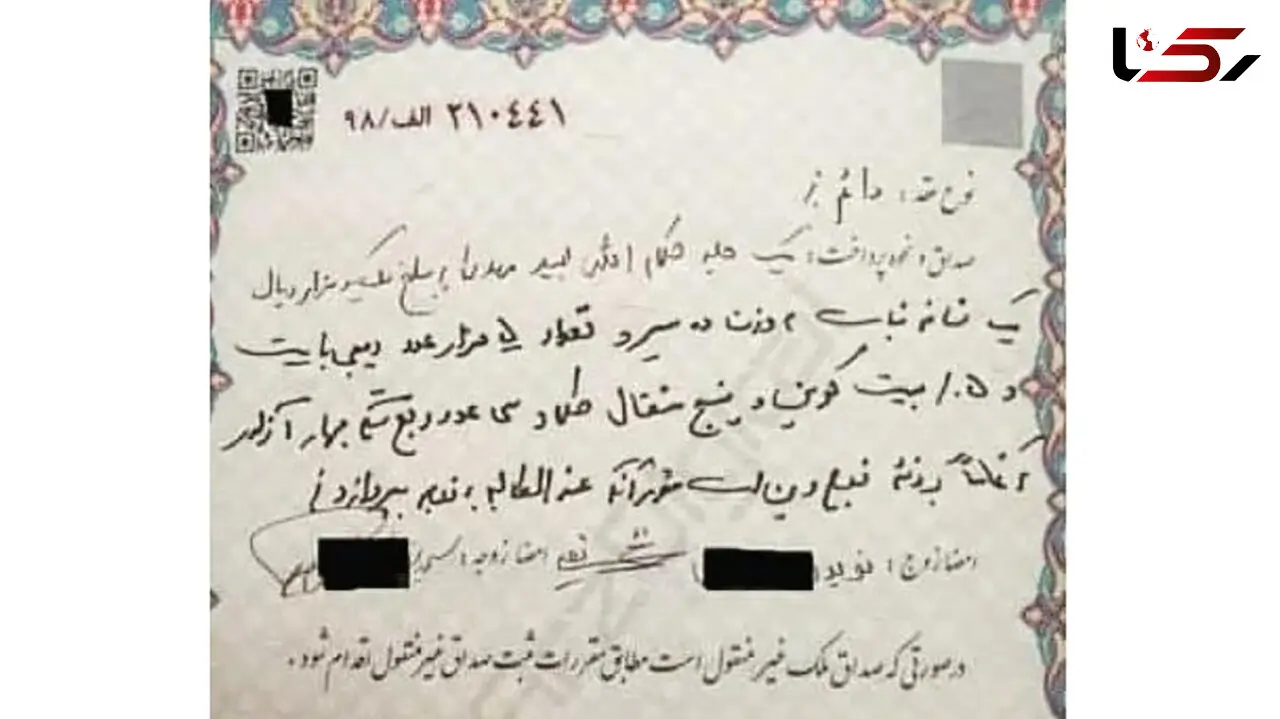 رکنا
۲۱۰٤٤۱ الف/۹۸
نوع عقد: دائم
صداق و نحوه پرداخت: یک جلد کلام الله مجید به مبلغ یکهزار ریال
یک شاخه نبات به وزن ده سیر و تعداد ۵ هزار عدد
و ۰.۵ بیت کوین و پنج مثقال طلا و سی عدد ربع سکه بهار آزادی
که تماماً بر ذمه زوج دین است عندالمطالبه به زوجه بپردازد
امضا زوج: نوید
امضا زوجه:
در صورتی که صداق ملک غیر منقول است مطابق مقررات ثبت صداق غیر منقول اقدام شود.